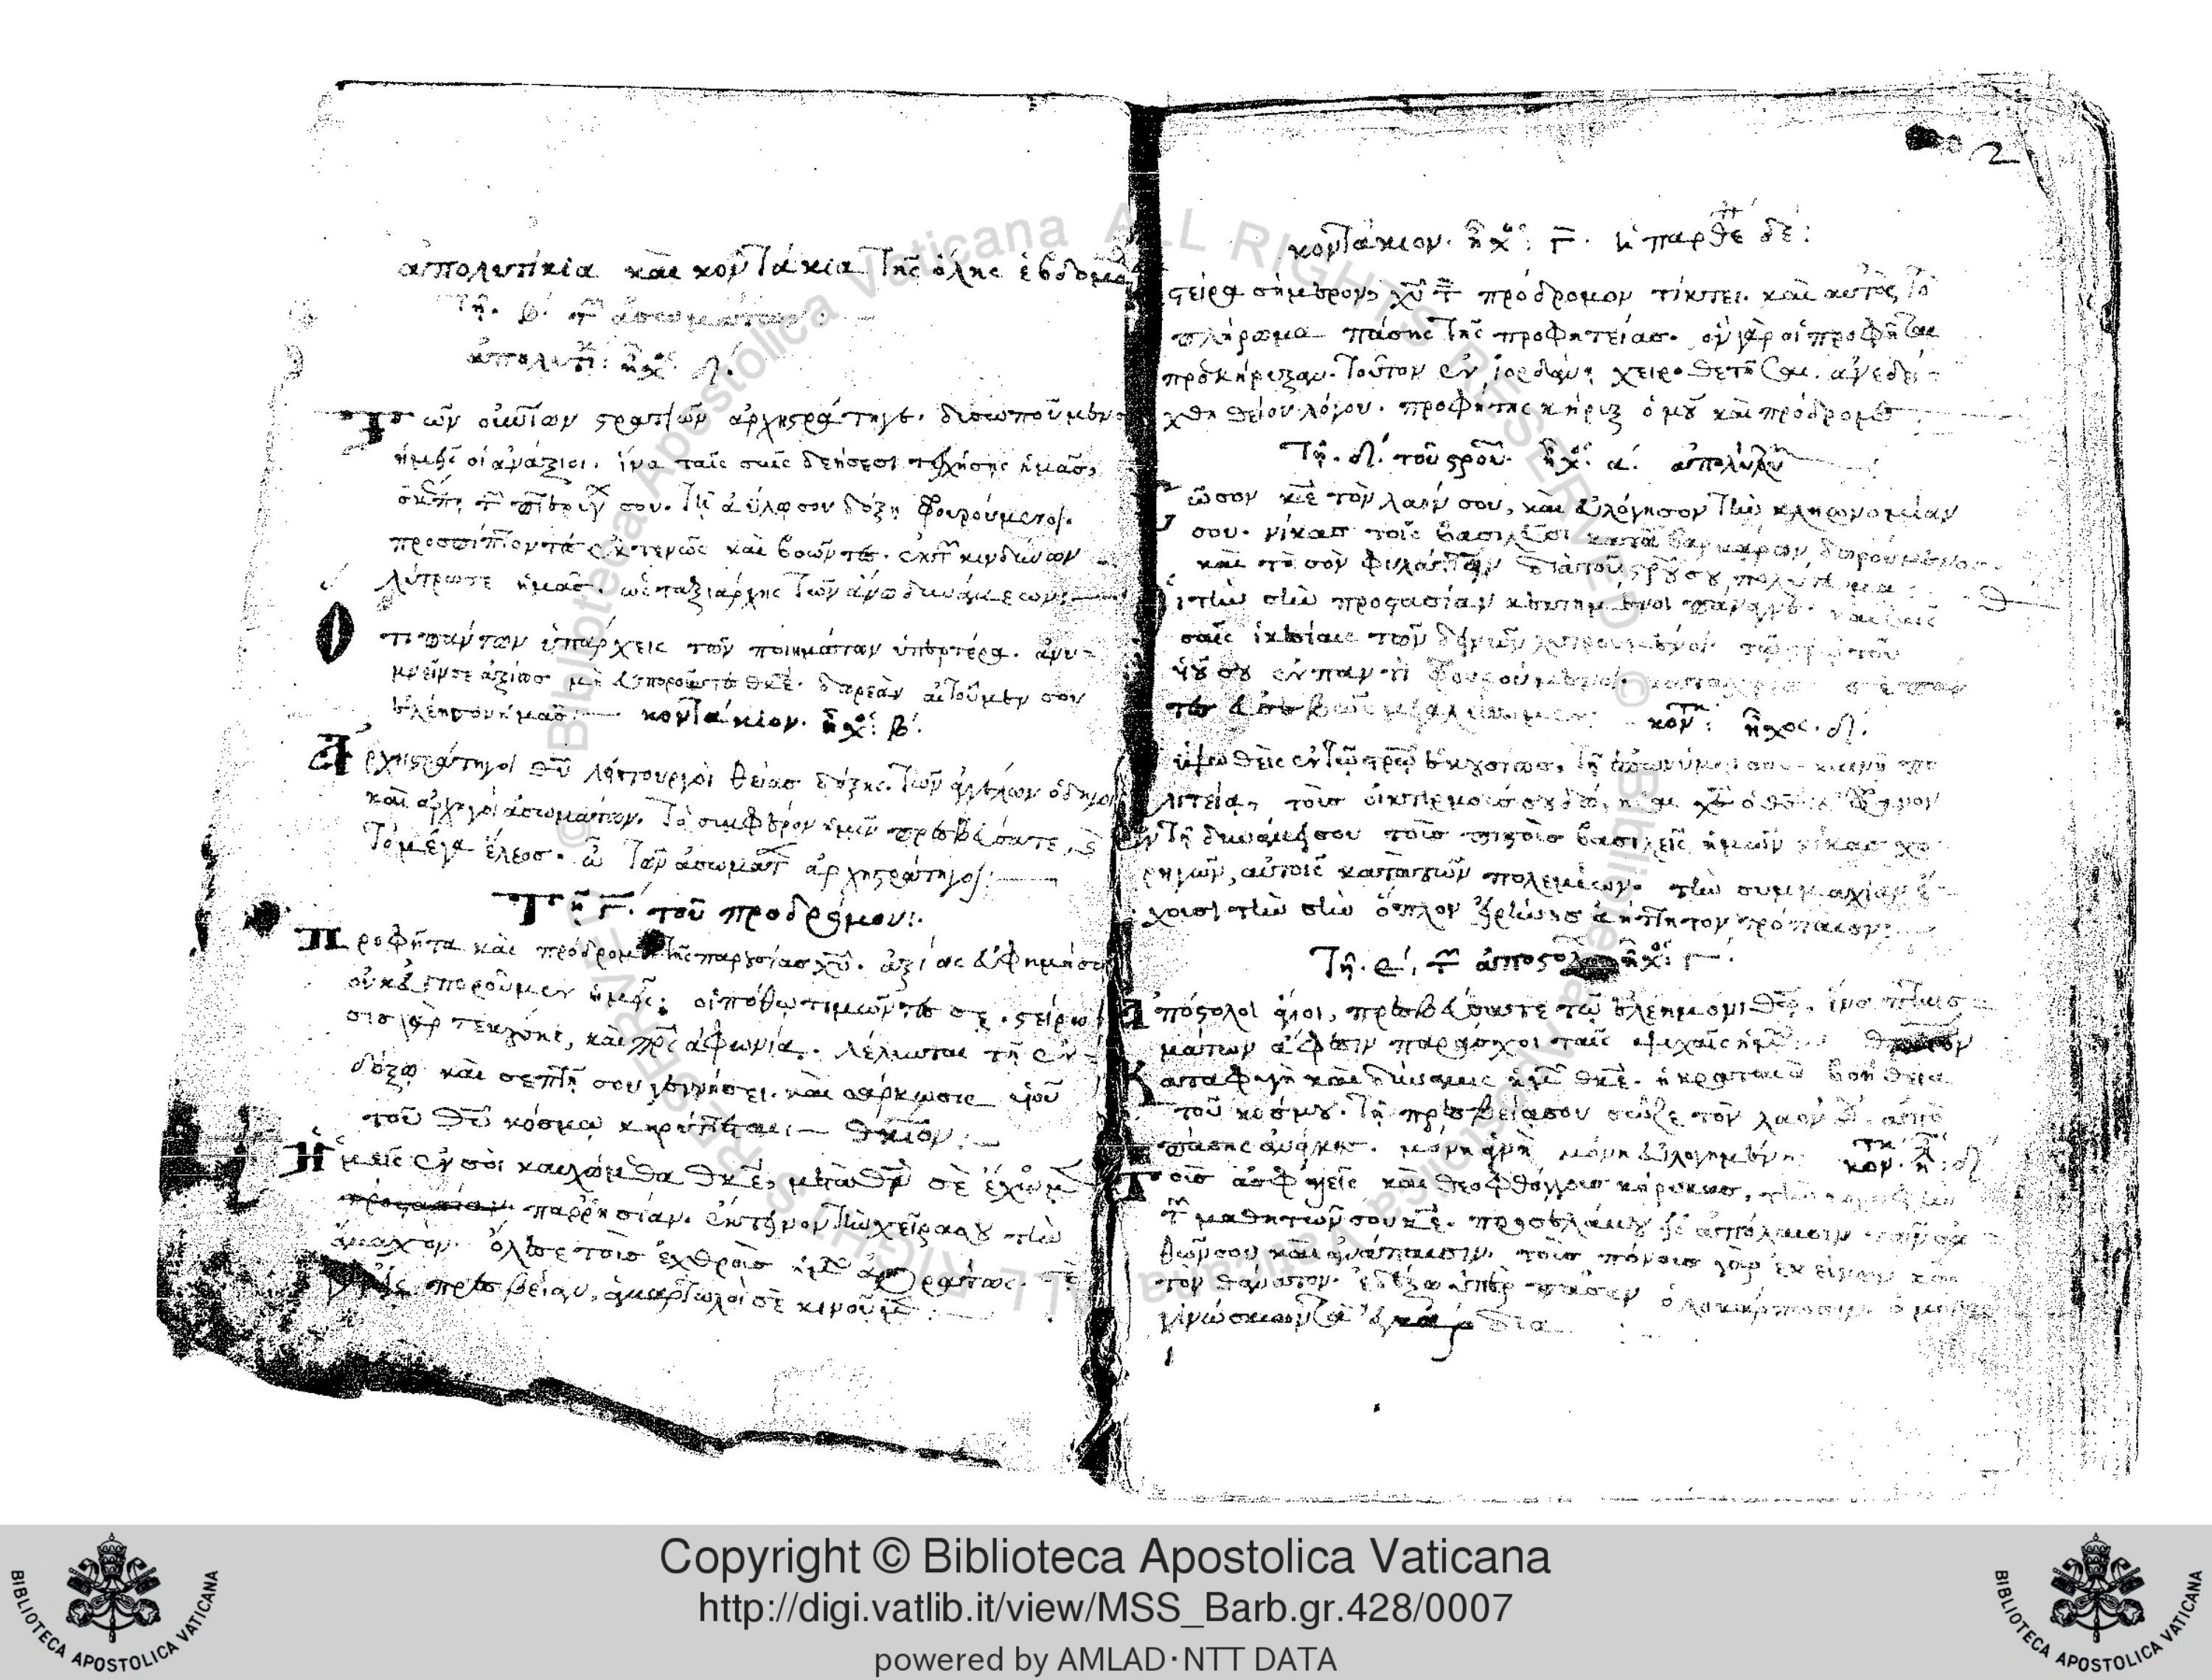 ἀπολυτίκια καὶ κοντάκια τῆς ὅλης ἑβδομά
Τῇ. β. τῶν ἀσωμάτων:
ἀπολυτι: ἦχος δ.
Τῶν οὐνίων στρατιῶν ἀρχηστράτηγε. δυσωποῦμεν
ἡμεῖς οἱ ἀνάξιοι. ἵνα ταῖς σαῖς δεήσεσι τειχήσης ἡμᾶς,
σου. τῆς ἀΰλου σου δόξης φρουρούμενοι.
προσπίπτοντας ἐκτενῶς καὶ βοῶντας. ἐκ τῶν κινδύνων
λύτρωσε ἡμᾶς. ὡς ταξιάρχης τῶν ἄνω δυνάμεων:
Ὅτι πάντων ὑπάρχεις τῶν ποιημάτων ὑπερτέρα. ἀνυ-
μνεῖν σε ἀξίως μὴ εὐποροῦντες θκε. δωρεὰν αἰτοῦμεν σου
ἐλέησον ἡμᾶς: κοντάκιον. ἦχος β.
Ἀρχηστράτηγοι θυ λειτουργοὶ θείας δόξης. τῶν ἀγγέλων ὁδηγοὶ
καὶ ἀρχηγοὶ ἀσωμάτων. τὸ συμφέρον ἡμῖν πρεσβεύσατε, κ
τὸ μέγα ἔλεος. ὡς τῶν ἀσωμάτων ἀρχηστράτηγοι:
Τῇ γ. τοῦ προδρόμου:
Προφῆτα καὶ πρόδρομε τῆς παρουσίας χυ. ἀξίως εὐφημῆσαι
οὐκ εὐποροῦμεν ἡμεῖς οἱ πόθω τιμῶντες σε. στείρω
σις γὰρ τεκούσης, καὶ πρς ἀφωνία. λέλυται τῇ ἐν-
δόξω καὶ σεπτῇ σου γεννήσει. καὶ σάρκωσις υἱοῦ
τοῦ θυ κόσμω κηρύττεται: θκίον:
Ἡμεῖς ἐν σοὶ καυχώμεθα θκε, μετὰ θν σὲ ἔχωμεν
προστασίαν. παρρησίαν. ἔκτεινον τὴν χεῖρα σου τὴν
ἄμαχον. ὄλεσε τοῖς ἐχθροῖς ἡμῶν
πρεσβείαν, ἁμαρτωλοί σε κινοῦμεν:
κοντάκιον. ἦχος: γ. ἡ παρθε δε:
στείρα σήμερον, χυ τὸν πρόδρομον τίκτει. καὶ αὐτὸς τὸ
πλήρωμα πάσης τῆς προφητείας. ὃν γὰρ οἱ προφῆται
προεκήρυξαν. τοῦτον ἐν ἰορδάνη χειροθετῆσαι. ἀνεδεί-
χθη θείου λόγου. προφήτης κήρυξ ὁμοῦ καὶ πρόδρομος
Τῇ. δ. τοῦ στρου. ἦχος. α. ἀπολυτι
σῶσον κε τὸν λαόν σου, καὶ εὐλόγησον τὴν κληρωνομίαν
σου. νίκας τοῖς βασιλεῦσι κατὰ βαρβάρων δωρούμενος.
καὶ τὸ σὸν φυλάττων διὰ τοῦ στρου σου πολίτευμα
οἱ τὴν σὴν προστασίαν κεκτημένοι πάναγνε. καὶ ταῖς
σαῖς ἱκεσίαις τῶν δεινῶν λυτρουμενοι. τῷ στρω τοῦ
υἱοῦ σου ἐν παντὶ φρουρούμενοι. κατὰ χρέος σὲ πάν
τες εὐσεβῶς μεγαλύνομεν: κοντακ: ἦχος. δ.
ὑψωθεὶς ἐν τῷ στρω ἑκουσίως, τῇ ἐπωνύμω σου καινῇ πο
λιτεία, τοὺς οἰκτιρμούς σου δώρησαι χε ὁ θς. εὔφρανον
ἐν τῇ δυνάμει σου τοὺς πιστοὺς βασιλεῖς ἡμῶν νίκας χο
ρηγῶν, αὐτοῖς κατὰ τῶν πολεμίων. τὴν συμμαχίαν ἔ-
χοιεν τὴν σὴν ὅπλον εἰρήνης ἀήττητον τρόπαιον:
Τῇ. ε. τῶν ἀποστόλων ἦχος: γ.
ἀπόστολοι ἅγιοι, πρεσβεύσατε τῷ ἐλεήμονι θεῷ, ἵνα πταισ-
μάτων ἄφεσιν παράσχοι ταῖς ψυχαῖς ἡμῶν: θκίον
Καταφυγὴ καὶ δύναμις ἡμῶν θκε. ἡ κραταιὰ βοήθεια
τοῦ κόσμου. τῇ πρεσβεία σου σῶζε τὸν λαόν σου ἀπὸ
πάσης ἀνάγκης. μόνη ἁγνὴ μόνη εὐλογημένη. κοντακ. ἦχ: δ
Τοὺς ἀσφαλεῖς καὶ θεοφθόγγους κήρυκας, τὴν κορυφὴν
τῶν μαθητῶν σου κε. προσελάβου εἰς ἀπόλαυσιν τῶν ἀγα
θῶν σου καὶ ἀνάπαυσιν. τοὺς πόνους γὰρ ἐκείνων καὶ
τὸν θάνατον. ἐδέξω ὑπὲρ πᾶσαν ὁλοκάρπωσιν ὁ μόνος
γινώσκων τὰ ἐγκάρδια
2
Copyright © Biblioteca Apostolica Vaticana
http://digi.vatlib.it/view/MSS_Barb.gr.428/0007
powered by AMLAD·NTT DATA
BIBLIOTECA APOSTOLICA VATICANA
BIBLIOTECA APOSTOLICA VATICANA